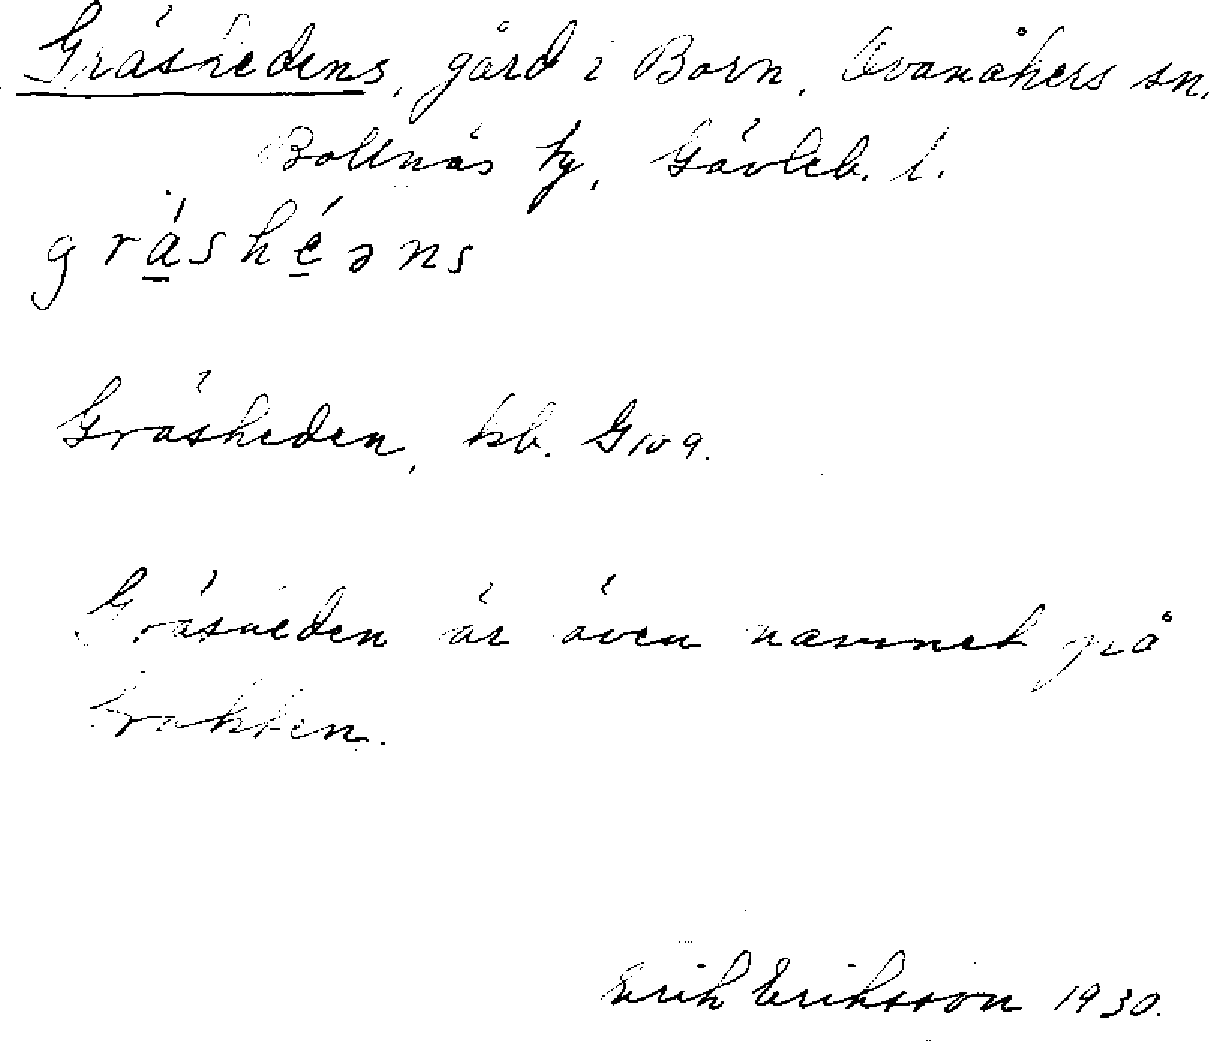 Gräshedens, gård i Born, Ovanåkers sn.
Bollnäs tg, Gävleb. l.
gräshéəns
Gräsheden, kb. G 10 9.
Gräsheden är även namnet på
trakten.
Erik Eriksson 1930.